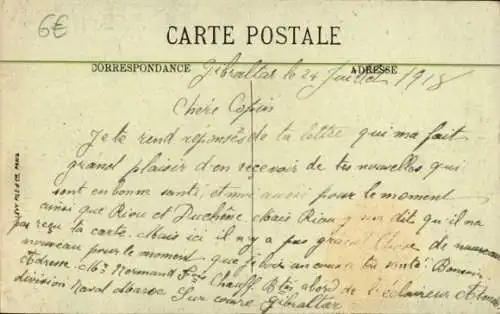 6€
CARTE POSTALE
CORRESPONDANCE
ADRESSE
Gibraltar le 24 Juillet 1918
Chère Copin
Je te rend reponses de ta lettre qui ma fait
grand plaisir d'en recevoir de tes nouvelles qui
sont en bonne santé, et moi aussi pour le moment
ainsi que Riou et Duchêne. Mais Riou dit qu'il n'a
pas reçu ta carte. Mais ici il n'y a pas grand Chose de nouveau
nouveau pour le moment que je bois un coup a ta santé. Bonsoir.
Adresse Mr Normand Chauff. Btes abord de l'éclaireur
division Naval Maroc Gibraltar